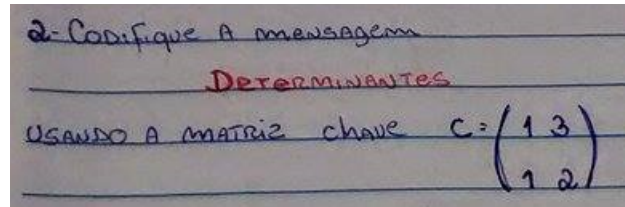 2- Codifique A mensagem
Determinantes
Usando A matriz chave C = (1 3
1 2)